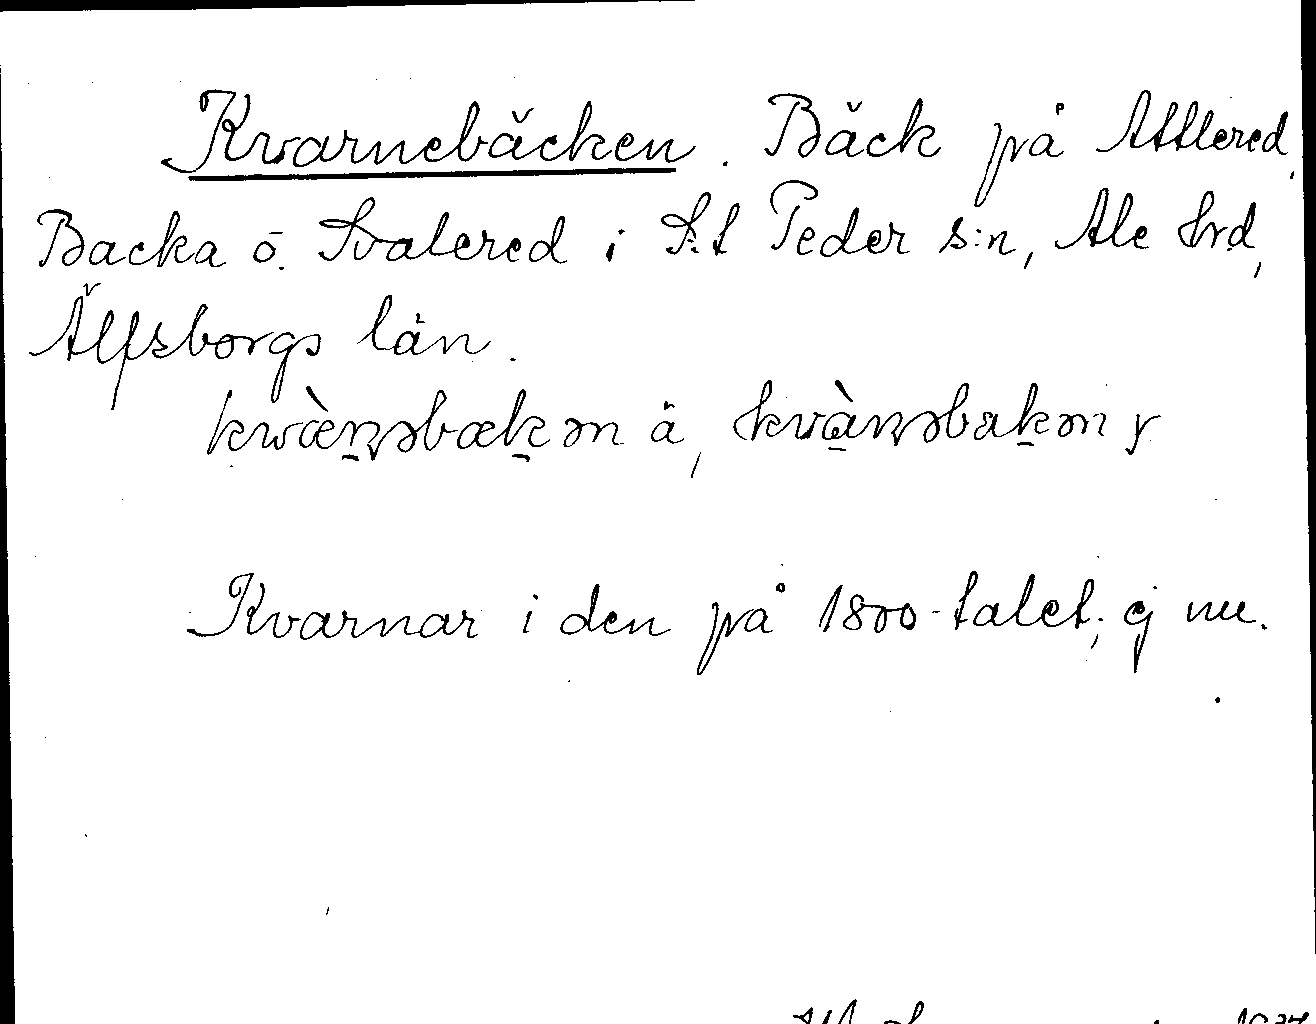 Kvarnebäcken. Bäck på Attlered,
Backa o. Svalered i S:t Peder s:n, Ale hrd,
Älfsborgs län.
kwæ̀ṇəbæḵən ä, kvàṇəbaḵən y
Kvarnar i den på 1800-talet; ej nu.